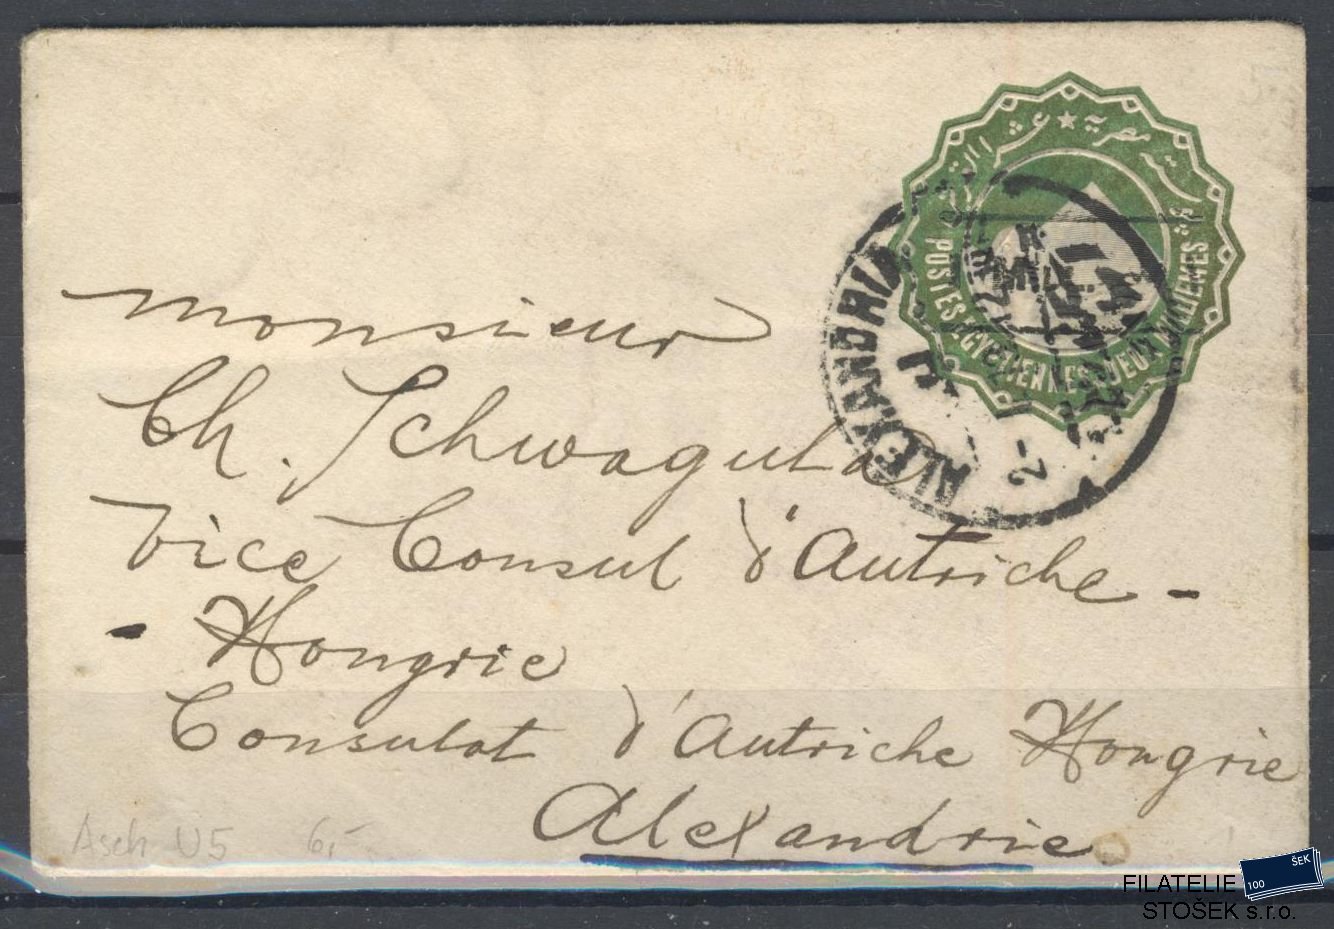 عشر المليم
POSTES EGYPTIENNES DEUX MILLIEMES
ALEXANDRIA
monsieur
Ch. Schwagula
Vice Consul d'Autriche -
- Hongrie
Consulat d'Autriche Hongrie
Alexandrie
Asch U5 6,-
100 ŠEK
FILATELIE
STOŠEK s.r.o.